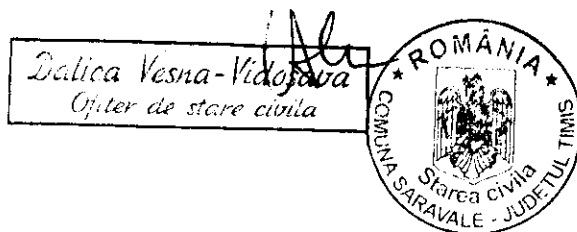 Dalica Vesna-Vidosava
Ofiter de stare civila
* ROMÂNIA *
COMUNA SARAVALE - JUDEŢUL TIMIS
Starea civila